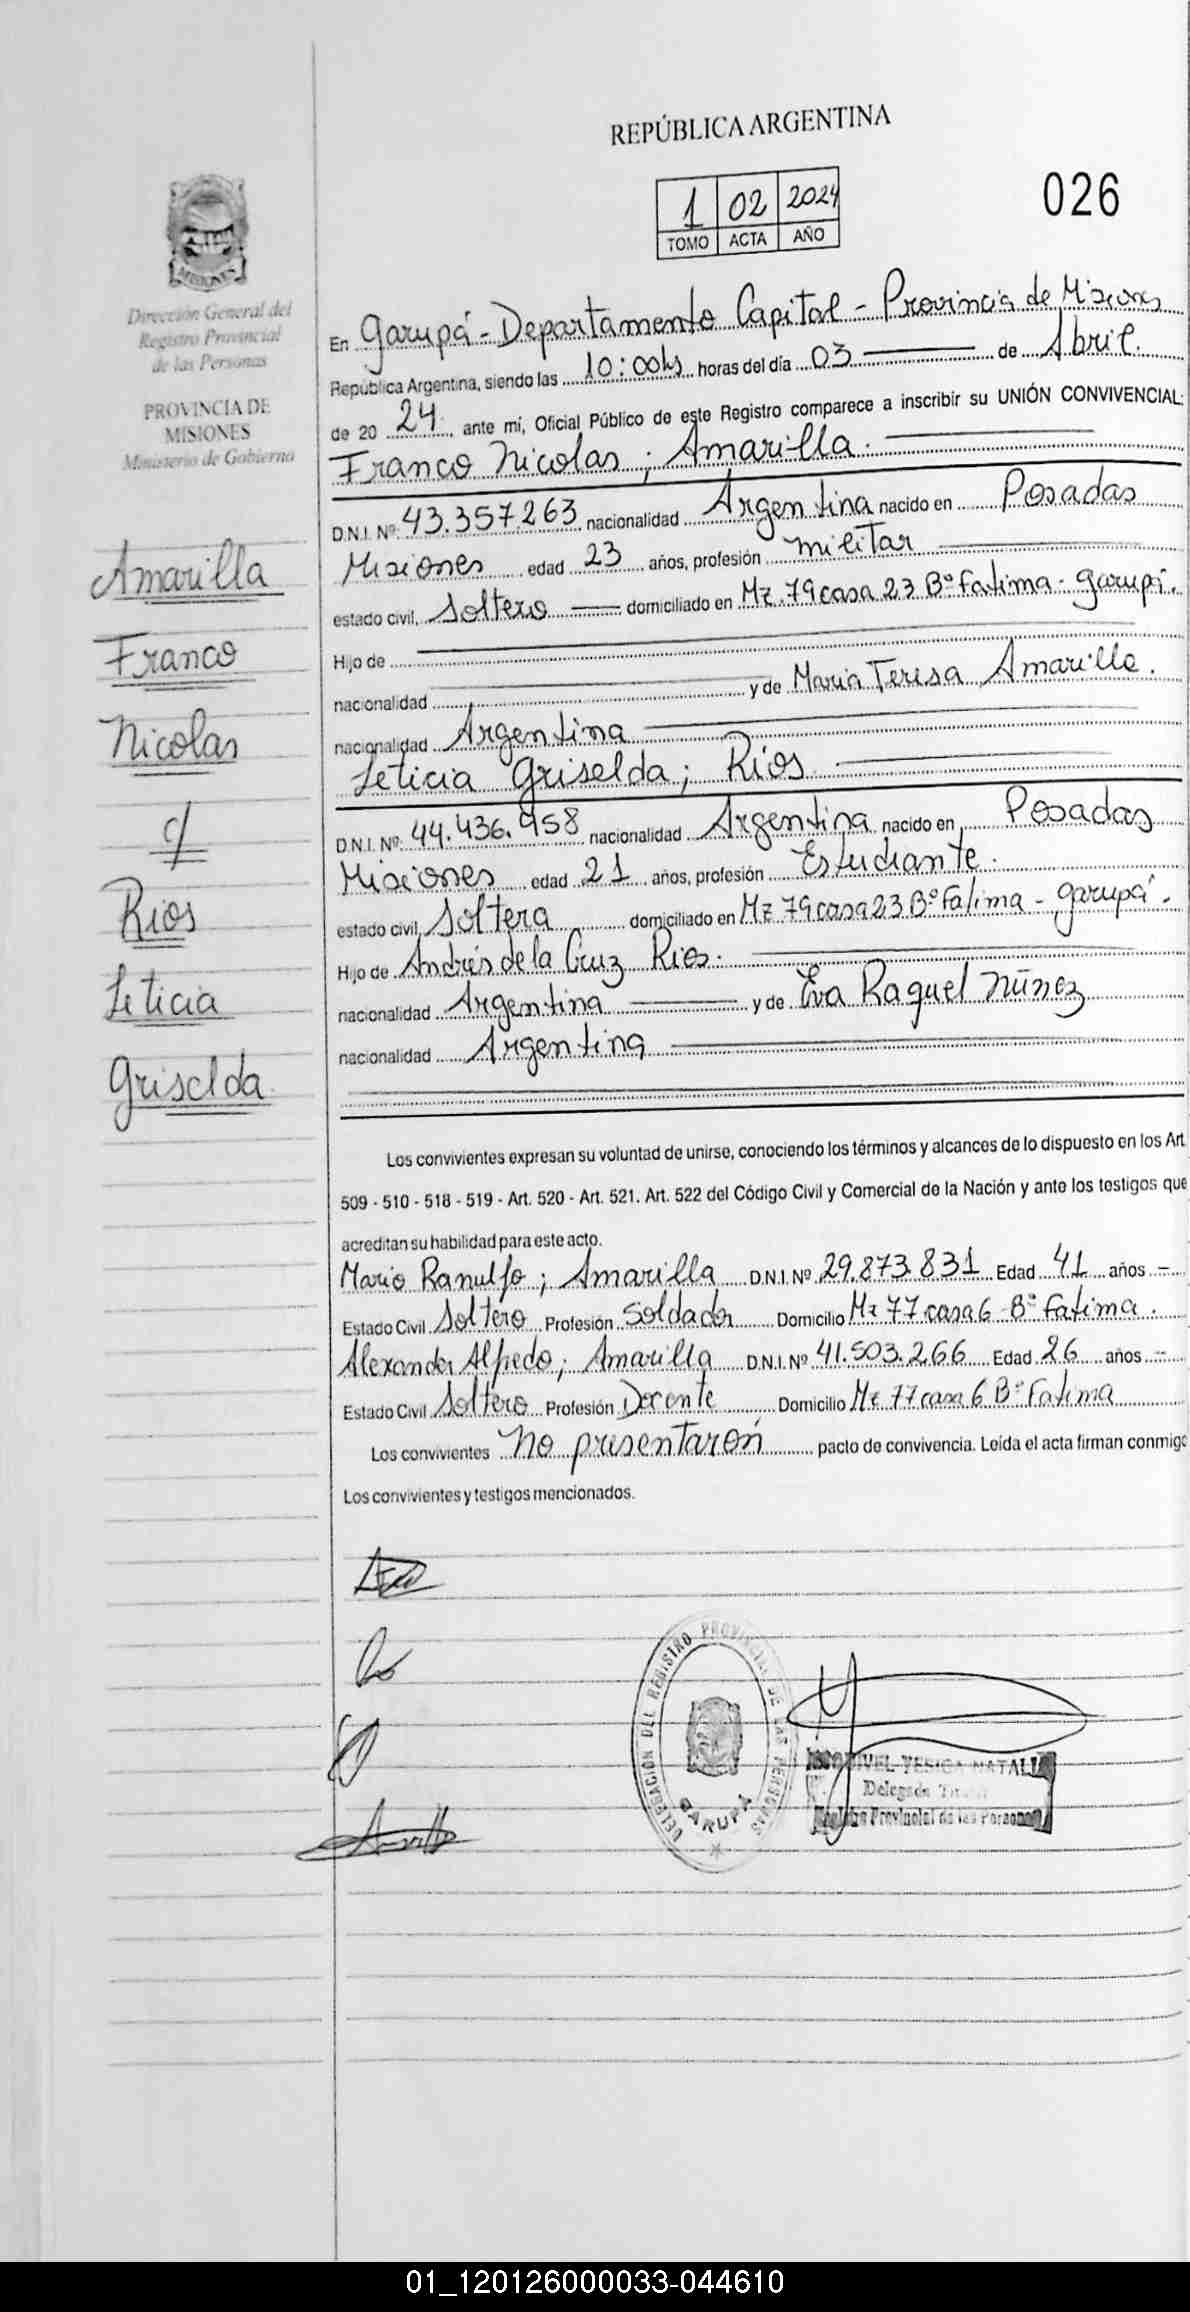 REPÚBLICA ARGENTINA
1 02 2024
TOMO ACTA AÑO
026
MISIONES
Dirección General del
Registro Provincial
de las Personas
PROVINCIA DE
MISIONES
Ministerio de Gobierno
Amarilla
Franco
Nicolas
c/
Rios
Leticia
Griselda
En Garupá - Departamento Capital - Provincia de Misiones
República Argentina, siendo las 10:00hs horas del día 03 de Abril.
de 20 24 ante mí, Oficial Público de este Registro comparece a inscribir su UNIÓN CONVIVENCIAL:
Franco Nicolas ; Amarilla.
D.N.I. Nº 43.357.263 nacionalidad Argentina nacido en Posadas
Misiones edad 23 años, profesión militar
estado civil, Soltero domiciliado en Mz. 79 casa 23 Bº Fatima - Garupá.
Hijo de
nacionalidad y de Maria Teresa Amarilla.
nacionalidad Argentina
Leticia Griselda; Ríos
D.N.I. Nº 44.436.958 nacionalidad Argentina nacido en Posadas
Misiones edad 21 años, profesión Estudiante.
estado civil, Soltera domiciliado en Mz 79 casa 23 Bº Fatima - Garupá.
Hijo de Andrés de la Cruz Rios.
nacionalidad Argentina y de Eva Raquel Núñez
nacionalidad Argentina
Los convivientes expresan su voluntad de unirse, conociendo los términos y alcances de lo dispuesto en los Art.
509 - 510 - 518 - 519 - Art. 520 - Art. 521. Art. 522 del Código Civil y Comercial de la Nación y ante los testigos que
acreditan su habilidad para este acto.
Mario Ranulfo ; Amarilla D.N.I. Nº 29.873.831 Edad 41 años -
Estado Civil Soltero Profesión Soldador Domicilio Mz 77 casa 6 Bº Fatima.
Alexander Alfredo; Amarilla D.N.I. Nº 41.503.266 Edad 26 años -
Estado Civil Soltero Profesión Docente Domicilio Mz 77 casa 6 Bº Fatima
Los convivientes no presentaron pacto de convivencia. Leída el acta firman conmigo
Los convivientes y testigos mencionados.
DELEGACIÓN DEL REGISTRO PROVINCIAL DE LAS PERSONAS
GARUPÁ
YESICA NATALI
Delegada
Registro Provincial de las Personas
01_120126000033-044610